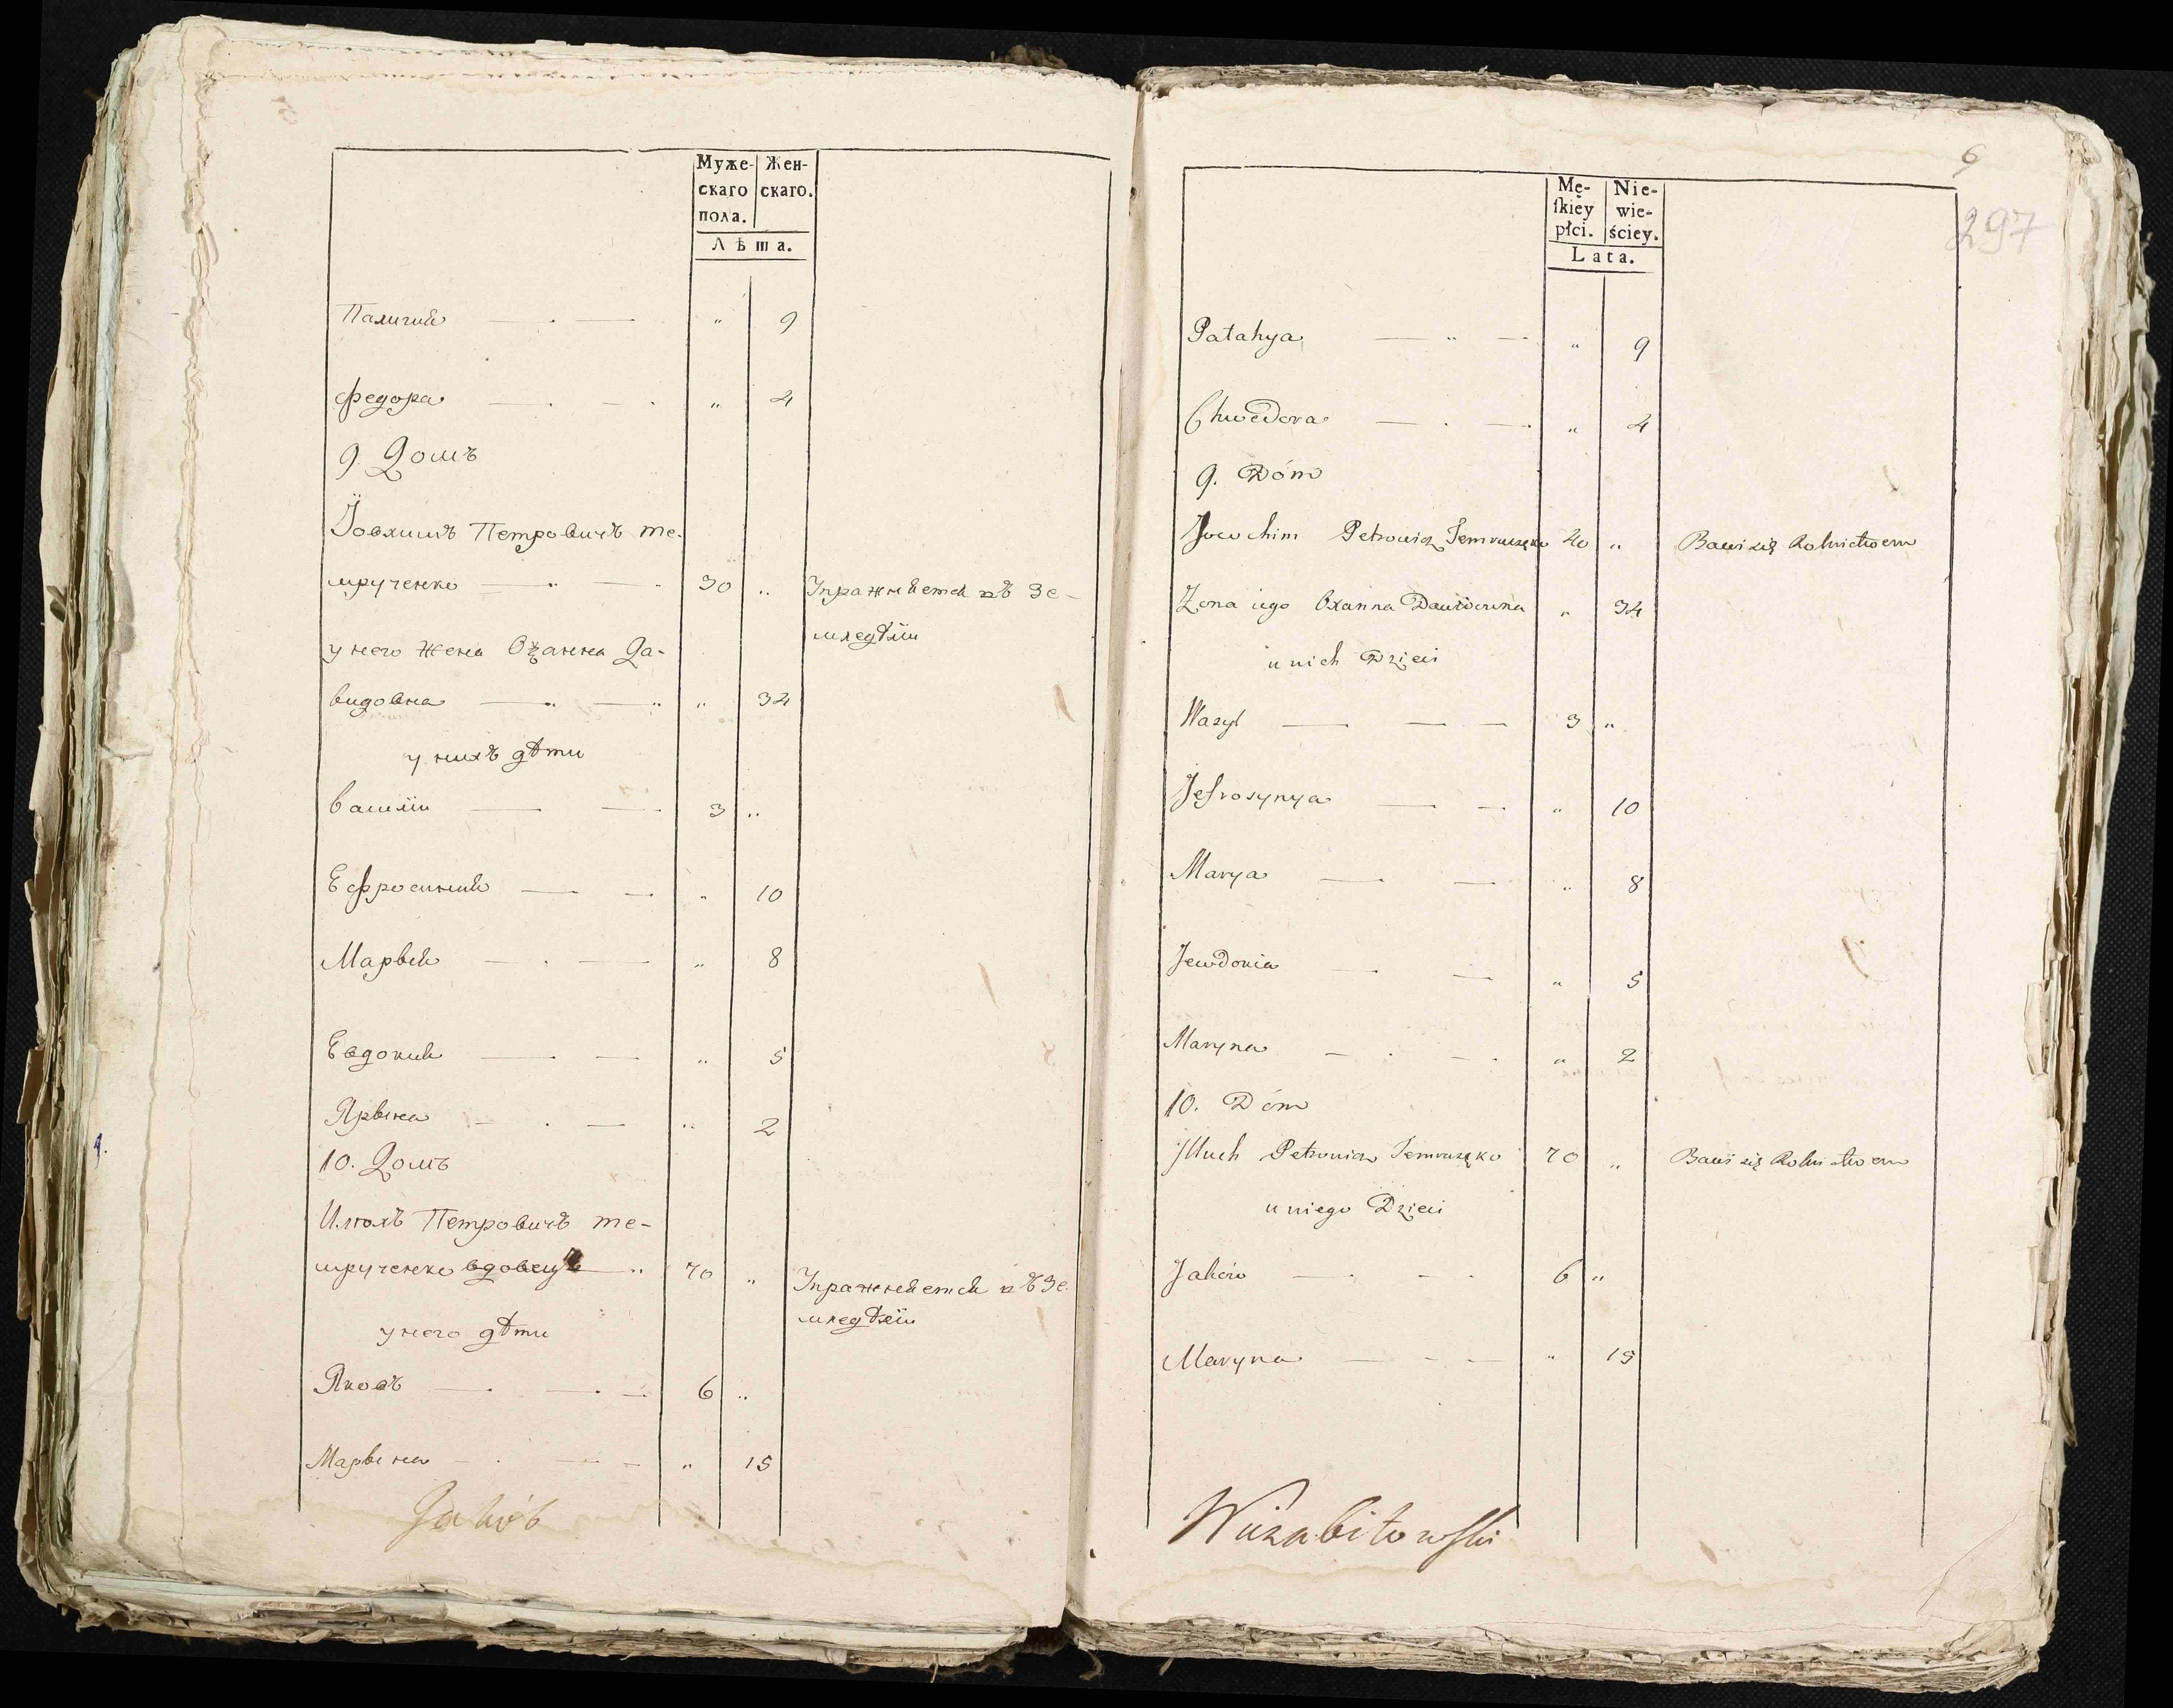 Муже- Жен-
скаго скаго.
пола.
Лѣта.
Палагия — . — „ 9
Федора — . — . „ 4
9 Домъ
Їовхимъ Петровичъ те-
мрученко — „ — . 30 „ Упражняется въ зе-
мледѣліи
у него Жена Оханна Да-
видовна — „ — „ „ 34
у нихъ дѣти
Василіи — — . 3 „
Ефросиния — . — . „ 10
Марья — . — „ 8
Евдокия — . — . „ 5
Арына — . — „ 2
10. Домъ
Илюхъ Петровичъ те-
мрученко вдовецъ — „ 70 „ Упражняется въ зе-
мледѣліи
у него дѣти
Яковъ — . — . — 6 „
Марына — . — — „ 15
Jakób
6
297
Mę- Nie-
ſkiey wie-
płci. ściey.
Lata.
Patahya — „ — . „ 9
Chwedora — . — . „ 4
9. Dóm
Jowchim Petrowicz Temruczęko 40 „ Bawi się Rolnictwem
Zona iego Oxanna Dawidowna „ 34
u nich Dzieci
Wasyl — — — 3 „
Jefrosynya — — . „ 10
Marya — . — . „ 8
Jewdokia — . — „ 5
Maryna — . — . „ 2
10. Dóm
Jlluch Petrowicz Temruczęko 70 „ Bawi się Rolnictwem
u niego Dzieci
Jakow — . - - 6 „
Maryna — - — „ 15